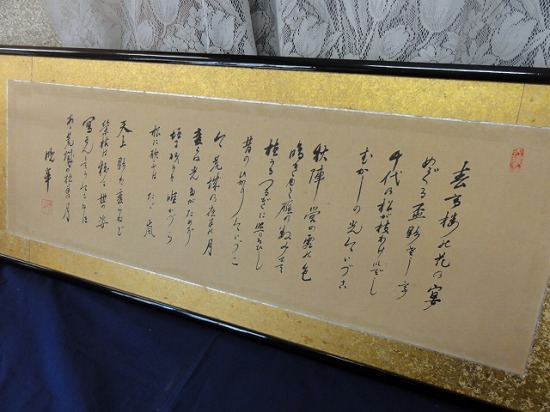 春高楼の花の宴
めぐる盃影さして
千代の松が枝わけ出でし
むかしの光今いづこ
秋陣営の霜の色
鳴き行く雁の数みせて
植うるつるぎに照りそひし
昔のひかり今いづこ
今荒城の夜半の月
変らぬ光たがためぞ
垣に残るは唯かつら
松に歌ふはたゞ嵐
天上影は変らねど
栄枯は移る世の姿
写さんとてか今も尚
あゝ荒城の夜半の月